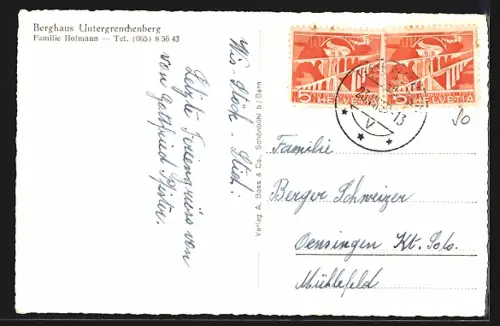 Berghaus Untergrenchenberg
Familie Hofmann — Tel. (065) 8 56 43
Wis - Stöck - Stich!
Letzte Feriengrüsse von
von Gottfried Pfister.
Verlag A. Boss & Co., Schönbühl b/Bern
5 HELVETIA
5 HELVETIA
V
Familie
Berger Schweizer
Oensingen Kt. Solo.
Mühlefeld